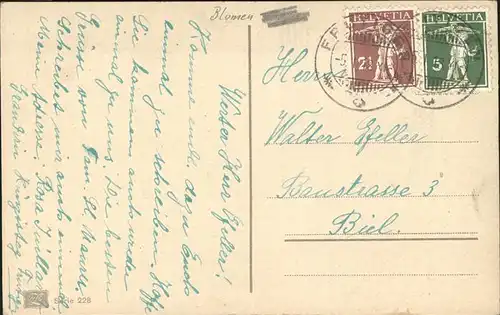 Blumen
HELVETIA
2½
HELVETIA
5
Herrn
Walter Efeller
Baustrasse 3
Biel.
Werter Herr Efeller!
Komme endl. dazu Euch
einmal zu schreiben. Hoffe
Sie kommen auch wieder
einmal zu uns. Die besten
Grüsse von Fam. St. Maurer.
Schreibet mir auch einmal
Meine Adresse: Rosa
Serie 228